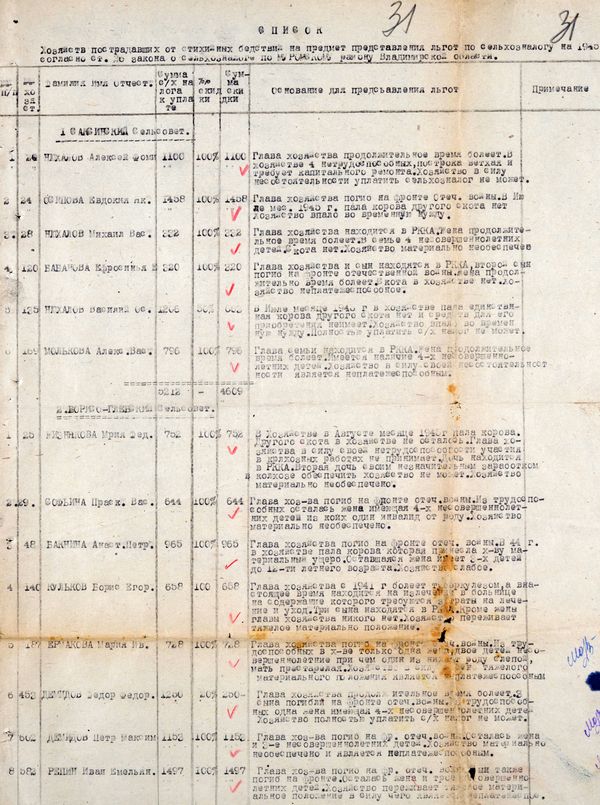 31
31
СПИСОК
Хозяйств пострадавших от стихийных бедствий на предмет представления льгот по сельхозналогу на 1945
согласно ст. закона о сельхозналоге по МУРОМСКОМУ району Владимирской области.
п/п
хозяст.
Фамилия Имя Отчест.
Сумма с/х налога к уплате
%% скидки
Сумма скидки
Основание для предсьавления льгот
Примечание
1 САКСИНСКИЙ Сельсовет.
1 26 Алексей Фоми 1100 100% 1100 Глава хозяйства продолжительное время болеет.В
хозяйстве 4 нетрудоспособных,построка ветхая и
требует капитального ремонта.Хозяйство в силу
несостоятельности уплатить сельхозналог не может.
2 24 ОСИПОВА Евдокия Як. 1458 100% 1458 Глава хозяйства погио на фронте Отеч.войны.В Ию
ле мес.1945 г. пала корова другого скота нет
Хозяйство впало во временную нужду.
3. 28 Михаил Вас. 332 100% 332 Глава хозяйства находится в РККА.Жена продолжите-
льное время болеет.В семье 4 несовершеннолетних
детей.Скота нет.Хозяйство материально необеспечен
4. 120 Ефросинья 320 100% 320 Глава хозяйства и сын находятся в РККА,второй сын
погиб на фронте отечественной войны.Жена продол-
жительно время болеет.Скота в хозяйстве нет.Хо-
зяйство неплатежеспособное.
5 135 Василий 1206 50% 603 В Июле месяце 1945 г в хозяйстве пала единствен-
ная корова другого скота нет и средств для его
приобретения неимеет.Хозяйство впало во времен
ную нужду.Полностью уплатить с/х налог не может.
6 159 МОЛЬКОВА Алекс.Васт. 796 100% 796 Глава семьи находится в РККА.Жена продолжительное
время болеет.Имеется наличие 4-х несовершенно-
летних детей.Хозяйство в силу своей несостоятельност
ности является неплатежеспособным.
5212 - 4609
2.БОРИСО-ГЛЕБСКИЙ Сельсовет.
1 25 Мрия Фед. 752 100% 752 В Хозяйстве в Августе месяце 1945г пала корова.
Другого скота в хозяйстве не осталось.Глава хо-
зяйства в силу своей нетрудоспособности участия
в колхозных работах не принимает.Дочь находится
в РККА.Вторая дочь своим незначительным заработком
в колхозе обеспечить хозяйство не может.Хозяйство
материально необеспечено.
2. 29. Праск. Вас. 644 100% 644 Глава хоз-ва погиб на фронте отеч.войны.Из трудоспо-
собных осталась жена имеющая 4-х несовершеннолет-
них детей из коих один инвалид от роду.Хозяйство
материально необеспечено.
3 48 Анаст.Петр. 965 100% 965 Глава хозяйства погио на фронте отеч. войны.В 44 г.
в хозяйстве пала корова которая принесла х-ву ма-
териальные ущеро.Оставшаяся жена имеет 3-х детей
до 12-ти летнего возраста.Хозяйство слабое.
4 140 КУЛЬКОВ Борис Егор. 658 100 658 Глава хозяйства с 1941 г болеет туберкулезом,а вна-
стоящее время находится на излечении в больнице
на содержание которого требуются затраты на лече-
ние и уход.Три сына находятся в РККА.Кроме жены
главы хозяйства никого нет.Хозяйство переживает
тяжелое материально положение.
5 187 ЕРМАКОВА Мария Ив. 728 100% 728 Глава хозяйства погио на фронте отеч.войны.Из тру-
доспособных в х-ве только одна жена,двое детей несо-
вершеннолетние при чем один из них от роду слепой,
мать престарелая.Хозяйство в силу своей тяжелого
материального положения является неплатежеспособным
6 453 ДЕМИДОВ Федор Федор. 1250 20% 250- Глава хозяйства продолжительное время болеет.3
сына погибли на фронте отеч.войны.Из трудоспособ-
ных одна жена имеющая 4-х несовершеннолетних детей.
Хозяйство полностью уплатить с/х налог не может.
7 562 ДЕМИДОВ Петр Максим 1153 100% 1153 Глава хоз-ва погио на фр. отеч.войны.Осталась жена
и 3-е несовершеннолетних детей.Хозяйство материально
необеспечено и является неплатежеспособным.
8 582 РЕПИН Иван Емельян. 1497 100% 1497 Глава хозяйства погио на фр. отеч. также
погио на фронте.Осталась жена и трое несовершенно-
летних детей.Хозяйство переживает тяжелое матери-
альное положение в силу чего является неплатежеспособное.